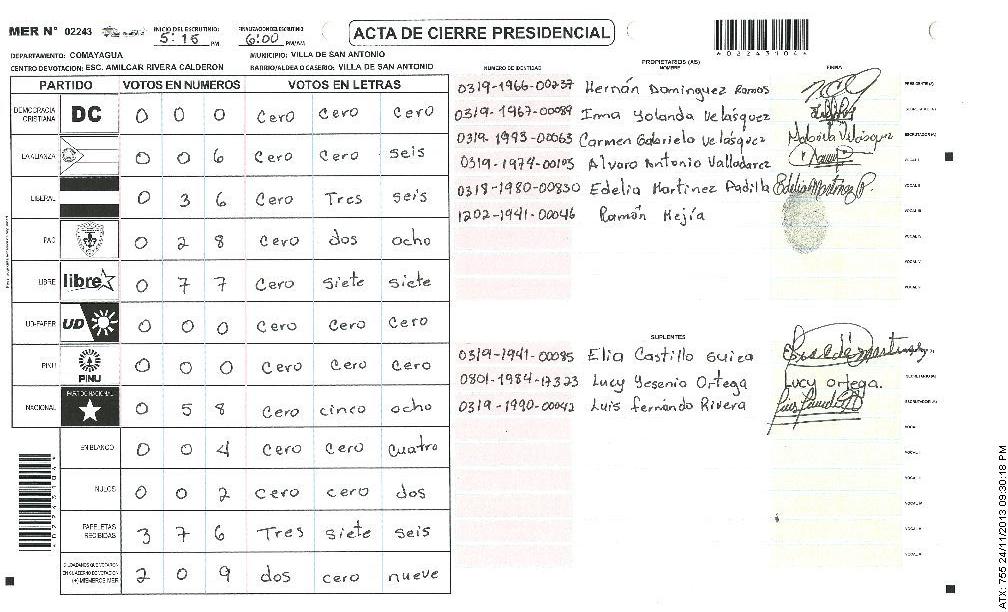 MER N° 02243
INICIO DEL ESCRUTINIO: 5:15 PM
FINALIZACION DEL ESCRUTINIO 6:00 PM/AM
ACTA DE CIERRE PRESIDENCIAL
A022431044
DEPARTAMENTO: COMAYAGUA
MUNICIPIO: VILLA DE SAN ANTONIO
CENTRO DE VOTACION: ESC. AMILCAR RIVERA CALDERON
BARRIO/ALDEA O CASERIO: VILLA DE SAN ANTONIO
PARTIDO VOTOS EN NUMEROS VOTOS EN LETRAS
DEMOCRACIA CRISTIANA DC 0 0 0 Cero Cero Cero
LA ALIANZA 0 0 6 Cero Cero seis
LIBERAL 0 3 6 Cero Tres seis
PAC 0 2 8 Cero dos ocho
LIBRE libre 0 7 7 Cero siete siete
UD-FAPER UD 0 0 0 Cero Cero Cero
PINU PINU 0 0 0 Cero Cero Cero
NACIONAL PARTIDO NACIONAL 0 5 8 Cero cinco ocho
EN BLANCO 0 0 4 Cero Cero Cuatro
NULOS 0 0 2 Cero cero dos
PAPELETAS RECIBIDAS 3 7 6 Tres siete seis
CIUDADANOS QUE VOTARON (+) MIEMBROS MER 2 0 9 dos cero nueve
NUMERO DE IDENTIDAD
PROPIETARIOS (AS)
NOMBRE
FIRMA
0319-1966-00237 Hernán Dominguez Ramos PRESIDENTE(A)
0319-1967-00089 Irma Yolanda Velásquez SECRETARIO(A)
0319-1993-00063 Carmen Gabriela Velásquez ESCRUTADOR(A)
0319-1974-00105 Alvaro Antonio Valladarez VOCAL I
0318-1980-00830 Edelia Martinez Padilla Edelia Martinez P. VOCAL II
1202-1941-00046 Ramón Mejía VOCAL III
SUPLENTES
0319-1941-00085 Elia Castillo
0801-1984-17323 Lucy Yesenia Ortega Lucy ortega. SECRETARIO(A)
0319-1990-00042 Luis fernando Rivera ESCRUTADOR(A)
ATX: 755 24/11/2013 09:30:18 PM